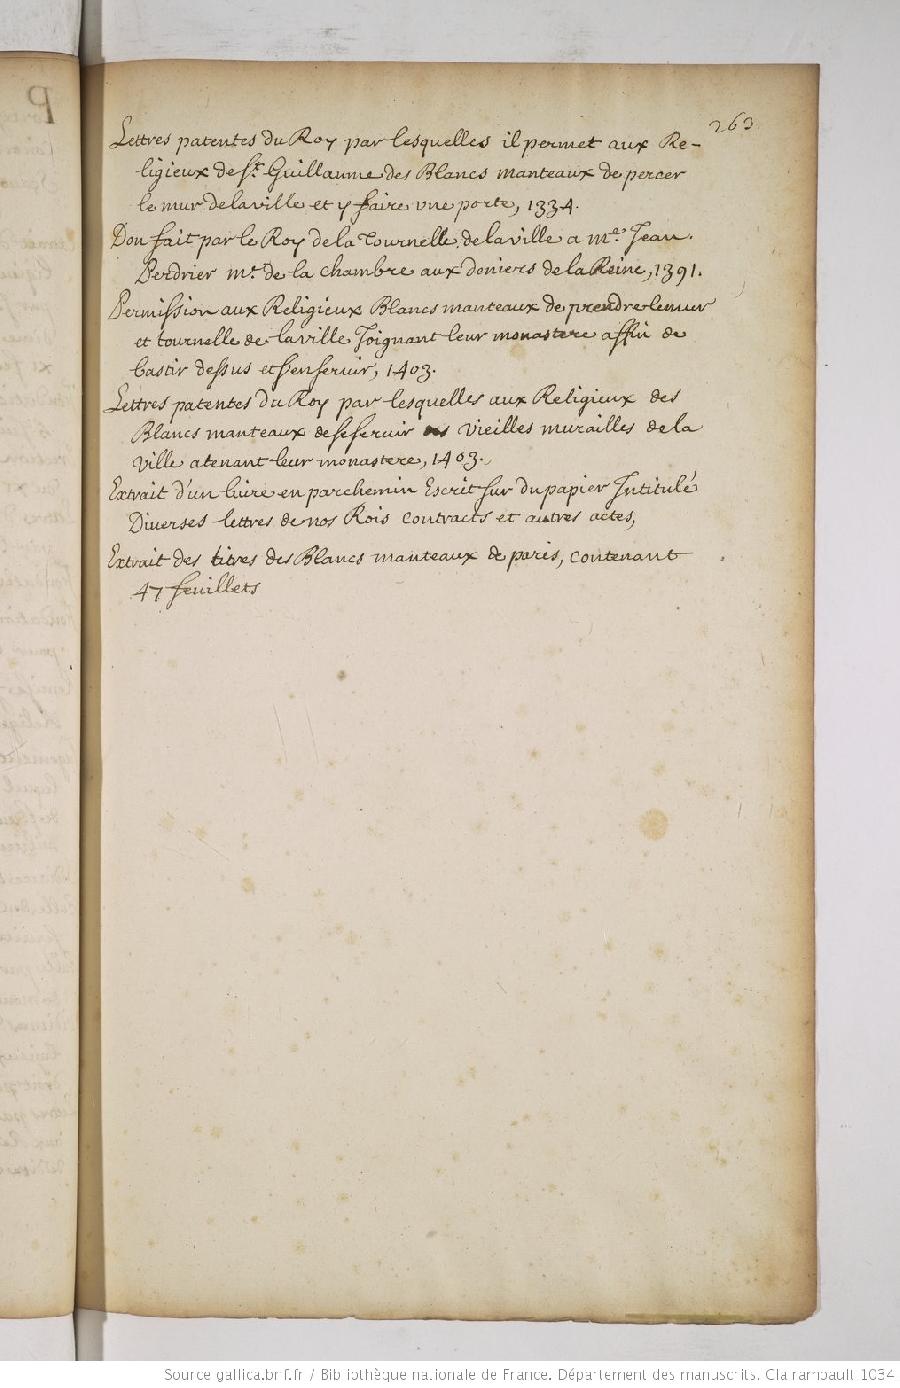 263
Lettres patentes du Roy par lesquelles il permet aux Re-
ligieux de St. Guillaume des Blancs manteaux de percer
le mur de la ville et y faire une porte, 1334.
Don fait par le Roy de la Tournelle de la ville a me. Jean
Perdrier mt. de la chambre aux deniers de la Reine, 1391.
Permission aux Religieux Blancs manteaux de prendre le mur
et tournelle de la ville Joignant leur monastere affin de
bastir dessus et s'en servir, 1403.
Lettres patentes du Roy par lesquelles aux Religieux des
Blancs manteaux de se servir des vieilles murailles de la
ville atenant leur monastere, 1403.
Extrait d'un livre en parchemin Escrit sur du papier Intitulé
Diverses lettres de nos Rois contracts et autres actes,
Extrait des titres des Blancs manteaux de paris, contenant
47 feuillets
Source gallica.bnf.fr / Bibliothèque nationale de France. Département des manuscrits. Clairambault 1034